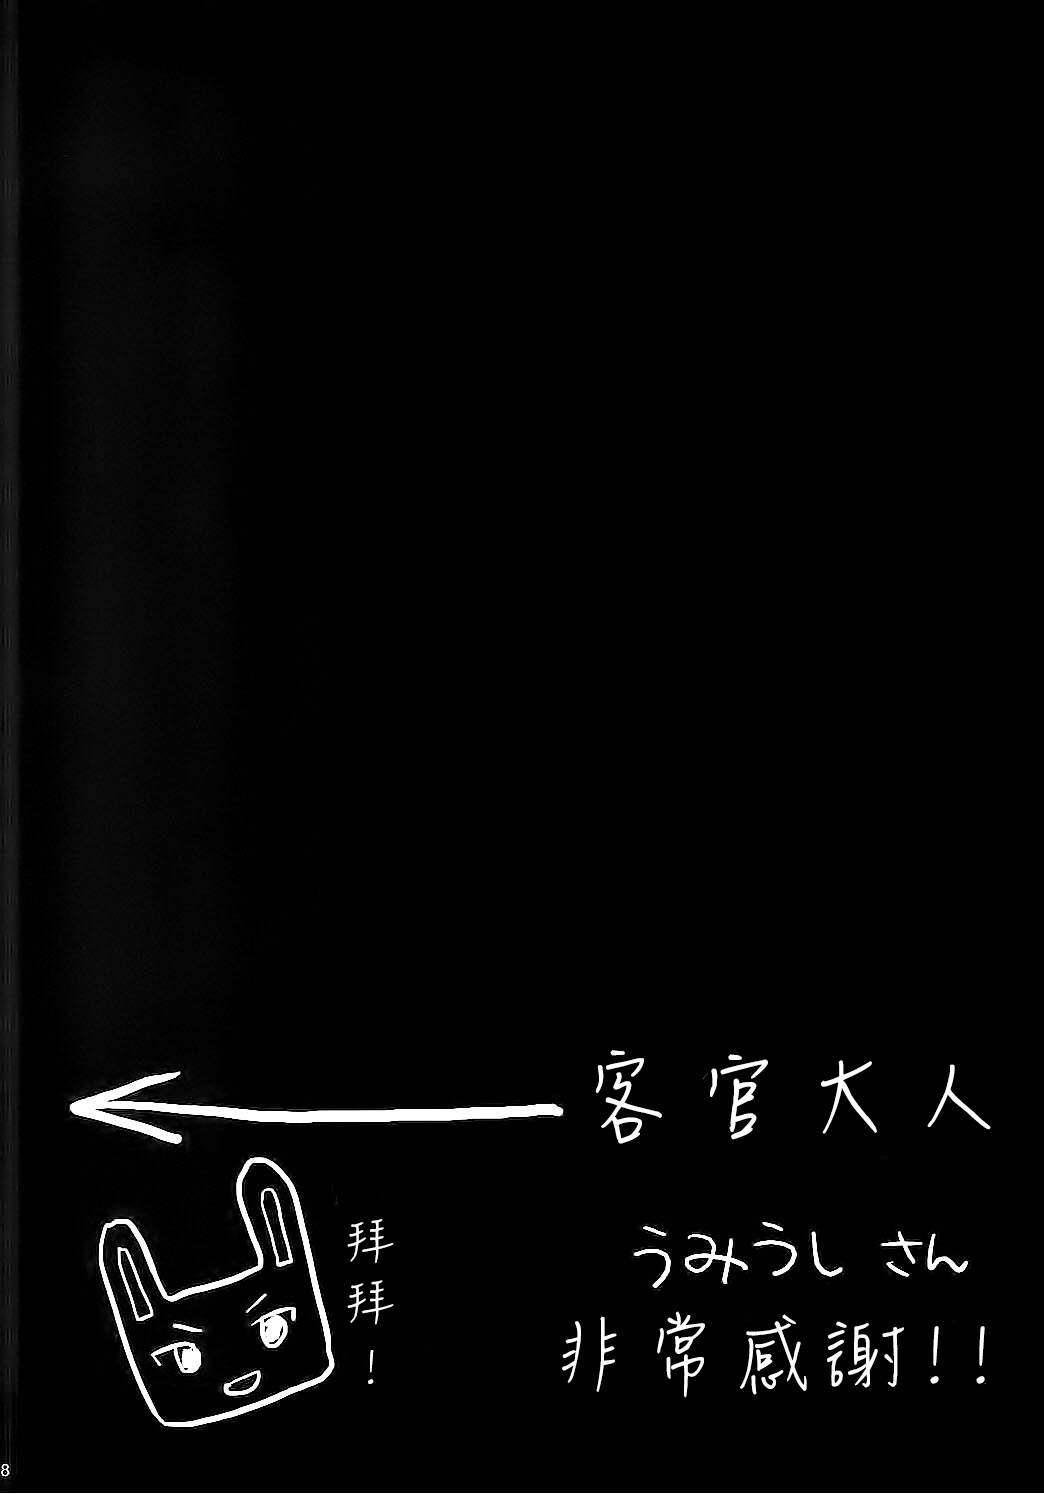 客官大人
うみうしさん
非常感謝!!
拜拜!
8